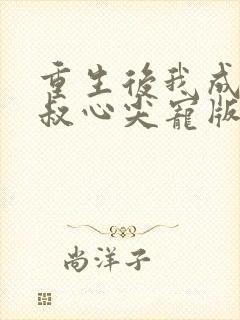 重生後我成
叔心尖寵版
尚洋子